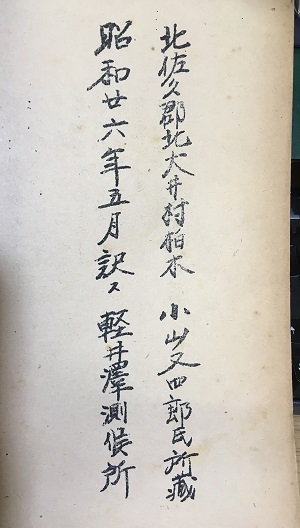 北佐久郡北大井村柏木 小山又四郎氏所藏
昭和廿六年五月訳ス 軽井澤測候所